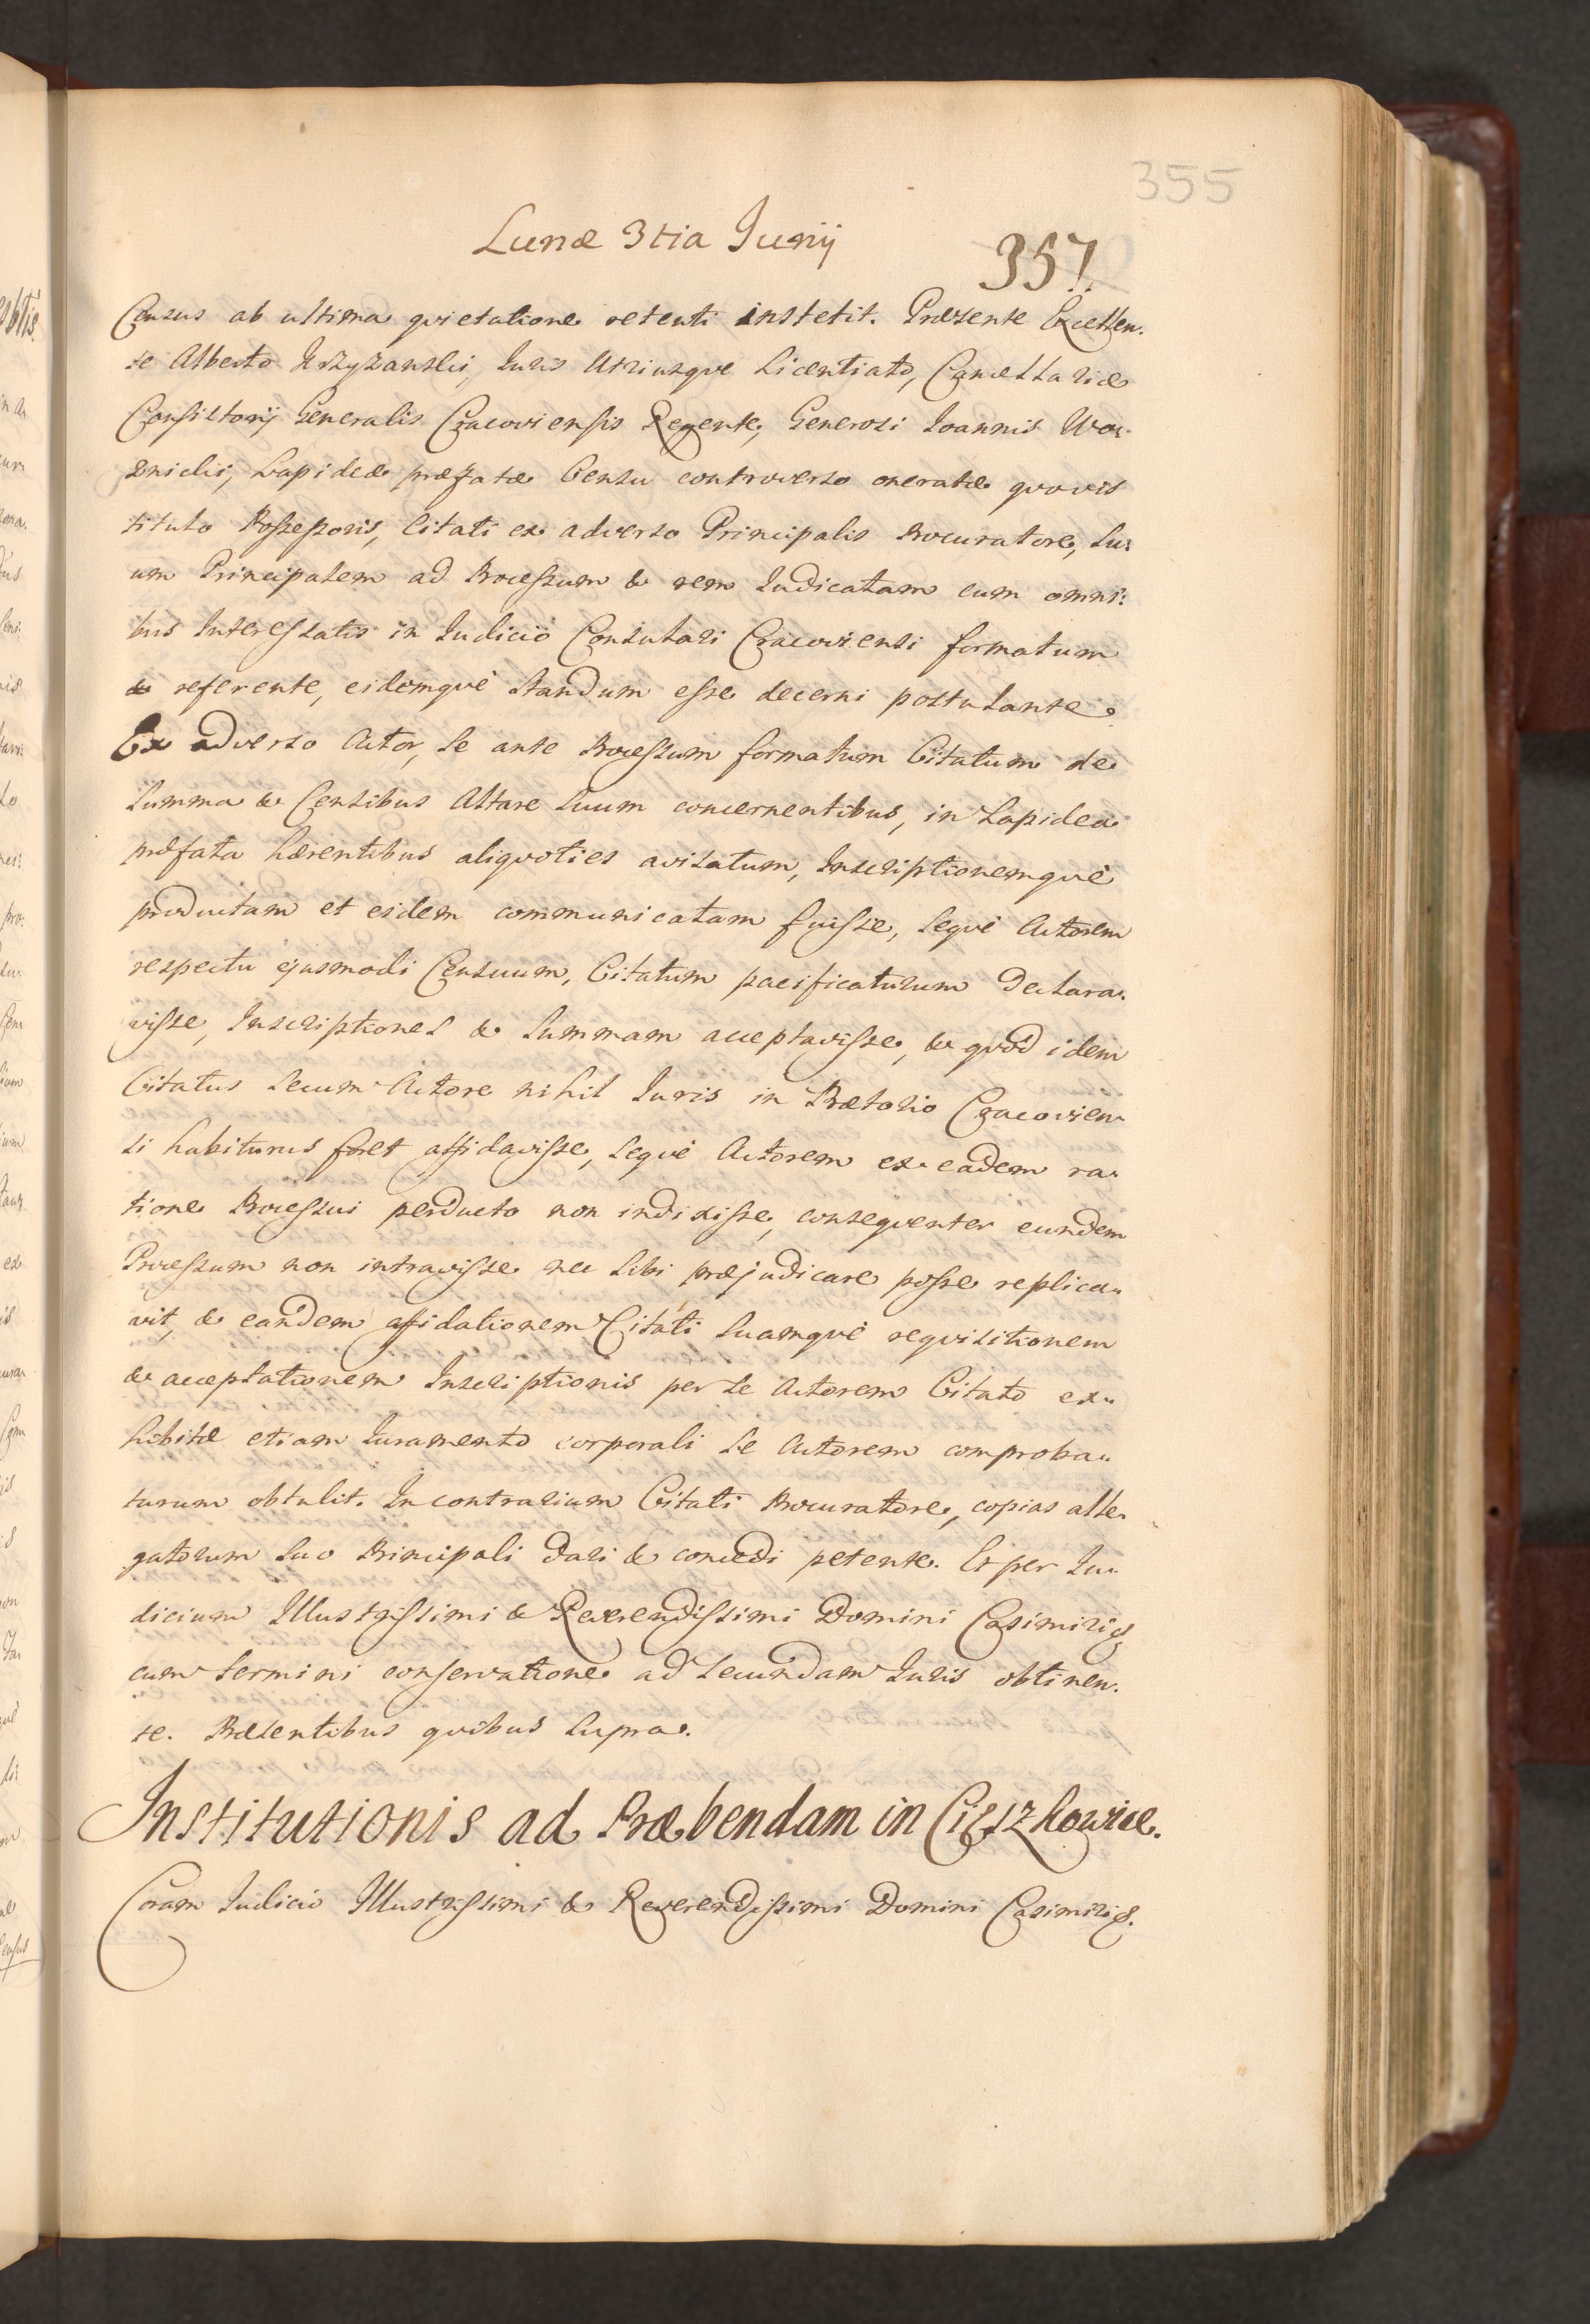 355
Lunæ 3tia Junij
357.
Census ab ultima qvietatione retenti instetit. Præsente Excellen.
te Alberto Krzyzanski, Juris Utriusqve Licentiato, Cancellariæ
Consistorij Generalis Cracoviensis Regente, Generosi Joannis Woy.
znicki, Lapideæ præfatæ Censu controverso oneratæ qvovis
titulo Possessoris, Citati ex adverso Principalis Procuratore, su:
um Principalem ad Processum & rem Judicatam cum omni:
bus Interessatis in Judicio Consulari Cracoviensi formatum
& referente, eidemqvè standum esse decerni postulante.
Ex adverso Actor, se ante Processum formatum Citatum de
Summa & Censibus Altare suum concernentibus, in Lapidea
præfata hærentibus aliqvoties avisatum, Inscriptionemqvè
productam et eidem communicatam fuisse, seqvè Actorem
respectu ejusmodi Censuum, Citatum pacificaturum declara.
visse, Inscriptiones & Summam acceptavisse, & qvòd idem
Citatus secum Actore nihil Juris in Prætorio Cracovien
si habiturus foret affidavisse, seqvè Actorem ex eadem ra.
tione Processui perducto non indixisse, conseqventer eundem
Processum non intravisse nec sibi præjudicare posse replica..
vit, & eandem affidationem Citati suamqvè reqvisitionem
& acceptationem Inscriptionis per se Actorem Citato ex..
hibitæ etiam Juramento corporali se Actorem comproba..
turum obtulit. In contrarium Citati Procuratore, copias alle.
gatorum suo Principali dari & concedi petente. Et per Ju..
dicium Illustrissimi & Reverendissimi Domini Casimiri &
cum termini conservatione ad secundam Juris obtinen.
te. Præsentibus qvibus supra.
Institutionis ad Præbendam in Cięszkowice.
Coram Judicio Illustrissimi & Reverendissimi Domini Casimiri &.